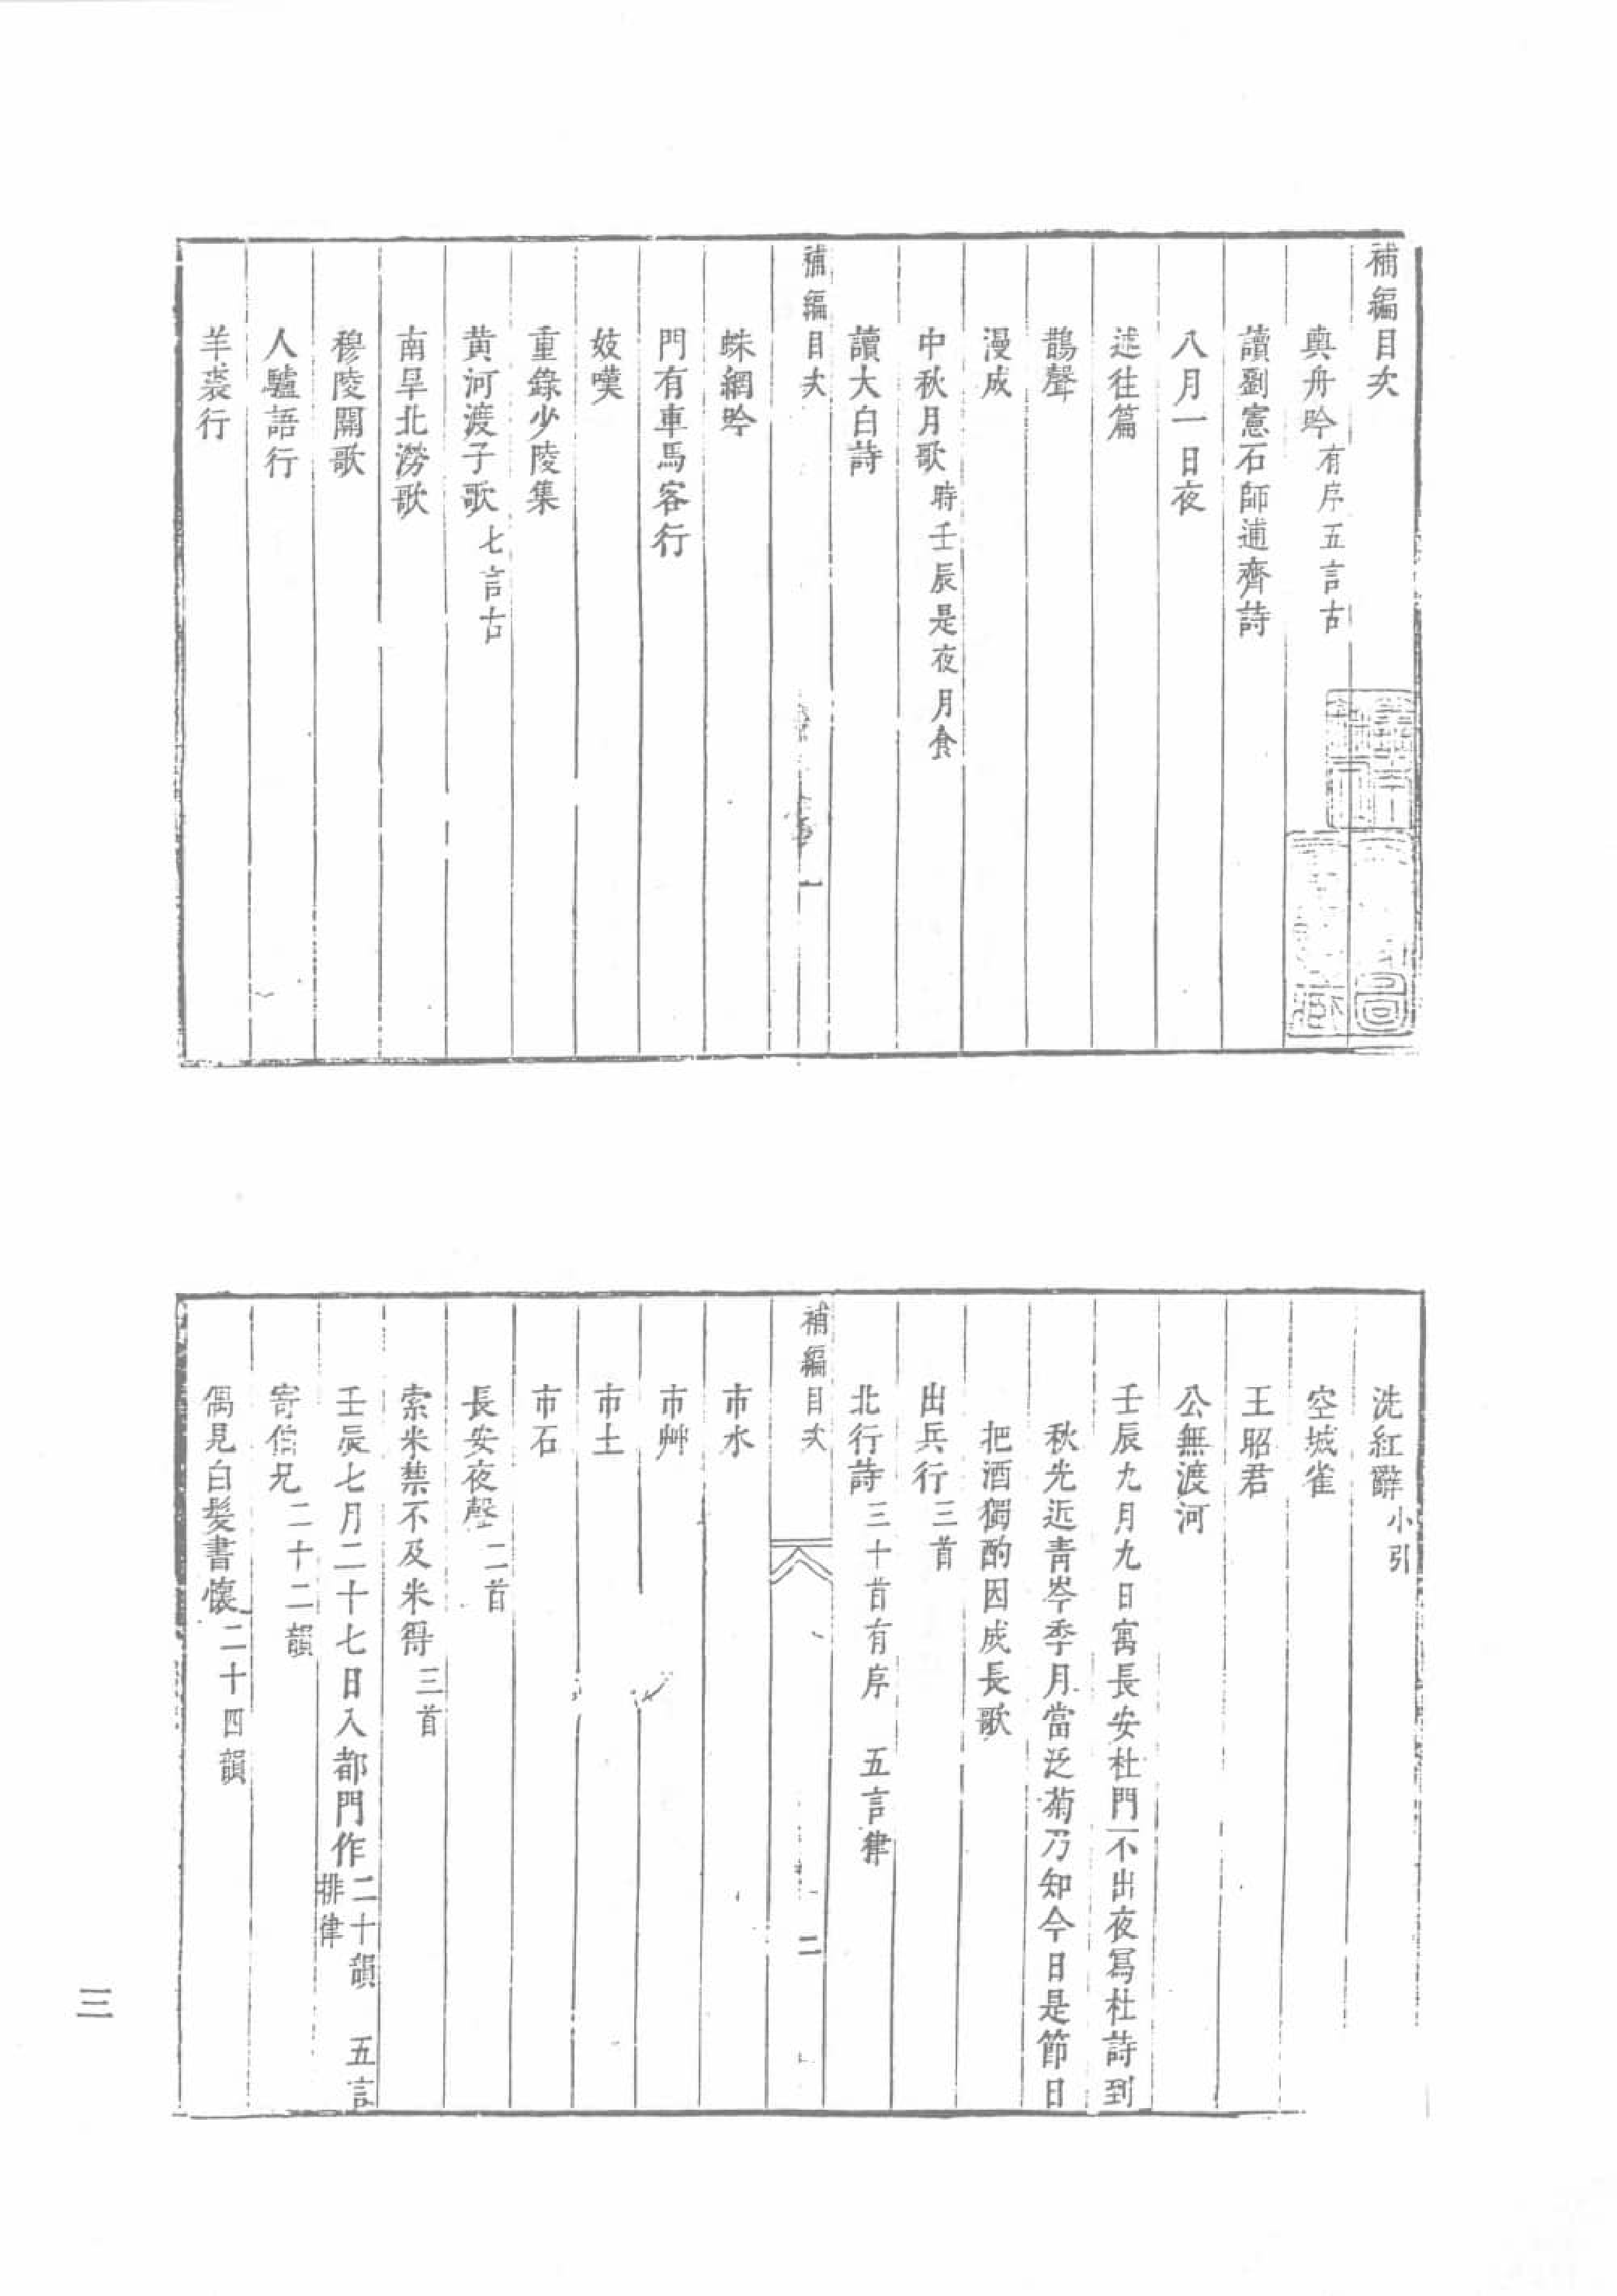 補編目次
輿舟吟有序五言古
讀劉憲石師逋齋詩
八月一日夜
述往篇
鵲聲
漫成
中秋月歌時壬辰是夜月食
讀太白詩
補編目次 一
蛛網吟
門有車馬客行
妓嘆
重錄少陵集
黄河渡子歌七言古
南旱北澇歌
穆陵關歌
人驢語行
羊裘行
洗紅辭小引
空城雀
王昭君
公無渡河
壬辰九月九日寓長安杜門不出夜寫杜詩到
秋光近青岑季月當泛菊乃知今日是節日
把酒獨酌因成長歌
出兵行三首
北行詩三十首有序 五言律
補編目次 二
市水
市艸
市土
市石
長安夜聲二首
索米禁不及米得三首
壬辰七月二十七日入都門作二十韻 五言排律
寄伯兄二十二韻
偶見白髮書懷二十四韻
三